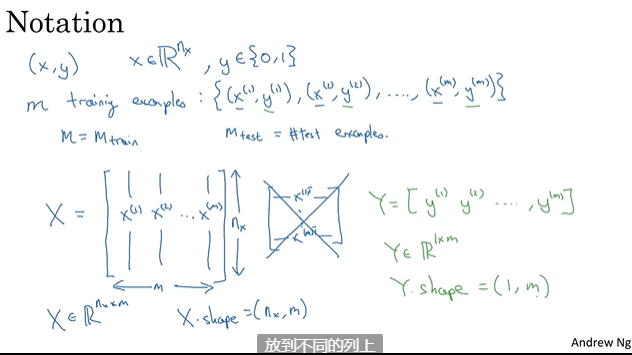 Notation
(x,y) x∈ℝ^{n_x}, y∈{0,1}
m training examples: {(x^{(1)},y^{(1)}), (x^{(2)},y^{(2)}), ...., (x^{(m)},y^{(m)})}
M = M_{train} M_{test} = #test examples.
X = [x^{(1)} x^{(2)} ... x^{(m)}] n_x
m
x^{(1)T}
x^{(m)T}
Y = [y^{(1)} y^{(2)} ...., y^{(m)}]
Y∈ℝ^{1×m}
Y.shape = (1,m)
X∈ℝ^{n_x×m} X.shape=(n_x,m)
放到不同的列上
Andrew Ng